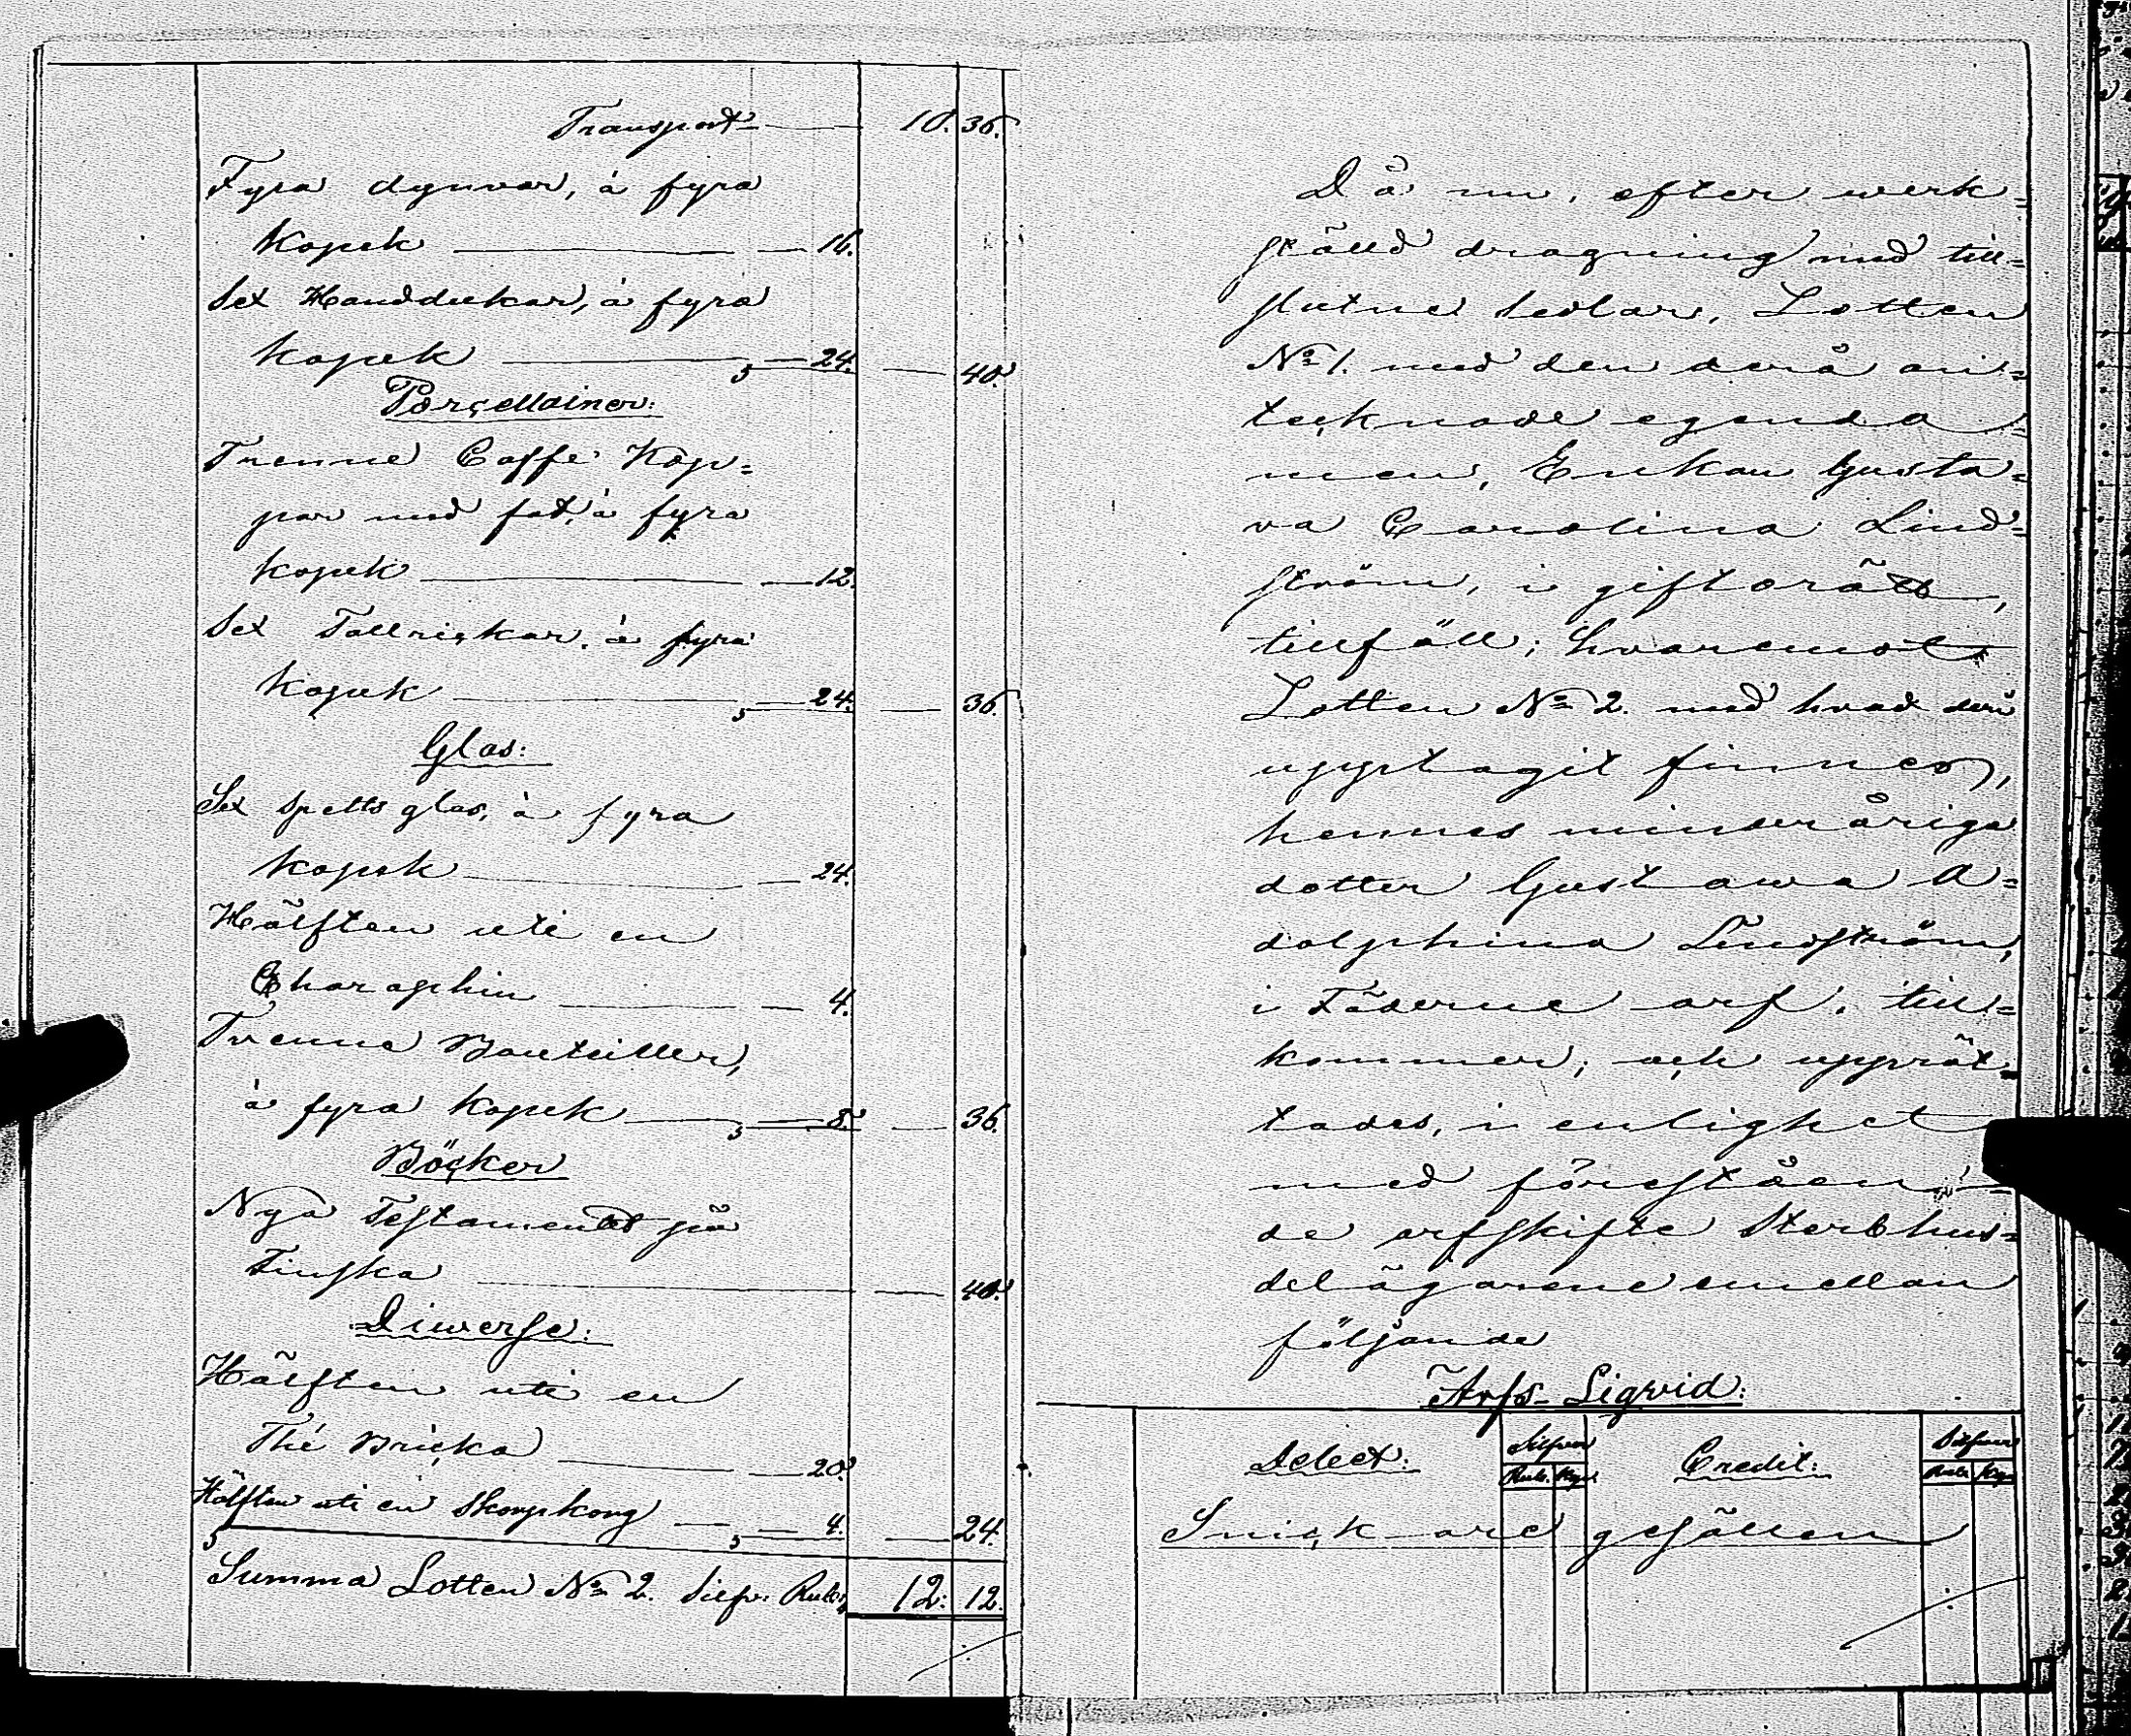 Transport 10. 36.
Fyra dynvar, á fyra
Kopek 16.
Sex Handdukar, á fyra
kopek 24. 40.
Porcellainer:
Trenne Caffe Kop=
par med fat, á fyra
kopek 12.
Sex Tallrickar. á fyra
kopek 24. 36.
Glas:
Sex spetts glas, á fyra
kopek 24.
Hälften uti en
Charaphin 4.
Tvenne Bouteiller,
á fyra kopek 8. 36.
Böcker
Nya Testamentet på
Finska 40.
Diwerse:
Hälften uti en
Thé Bricka 20.
Hälften uti en 4. 24.
Summa Lotten No 2. Silfv: Rub: 12: 12.
Då nu, efter werk=
ställd dragning med till=
slutne sedlar, Lotten
No 1. med den derå an=
tecknade egendo=
men, Enkan Gusta=
va Carolina Lind=
ström, i giftorätt,
tillföll; hvaremot
Lotten No 2. med hvad derå
upptagit finnes,
hennes minderåriga
dotter Gustawa A=
dolphina Lindström,
i Fäderne arf, till=
kommer; och upprät=
tades, i enlighet
med föreståen=
de arfskifte Sterbhus=
delägarene emellan
följande
Arfs-Liqvid:
Debet: Silfver Credit: Silfver
Rub. Kop. Rub. Kop.
Snickare gesällen